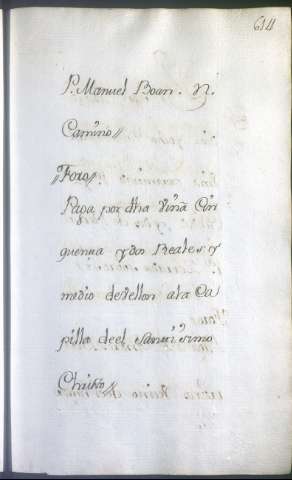 614
P. Manuel Boan. N.
Camino//
//Foro//
Paga por dha viña Cin
quenta y dos Reales y
medio de vellon ala Ca
pilla deel Santissimo
Christo//